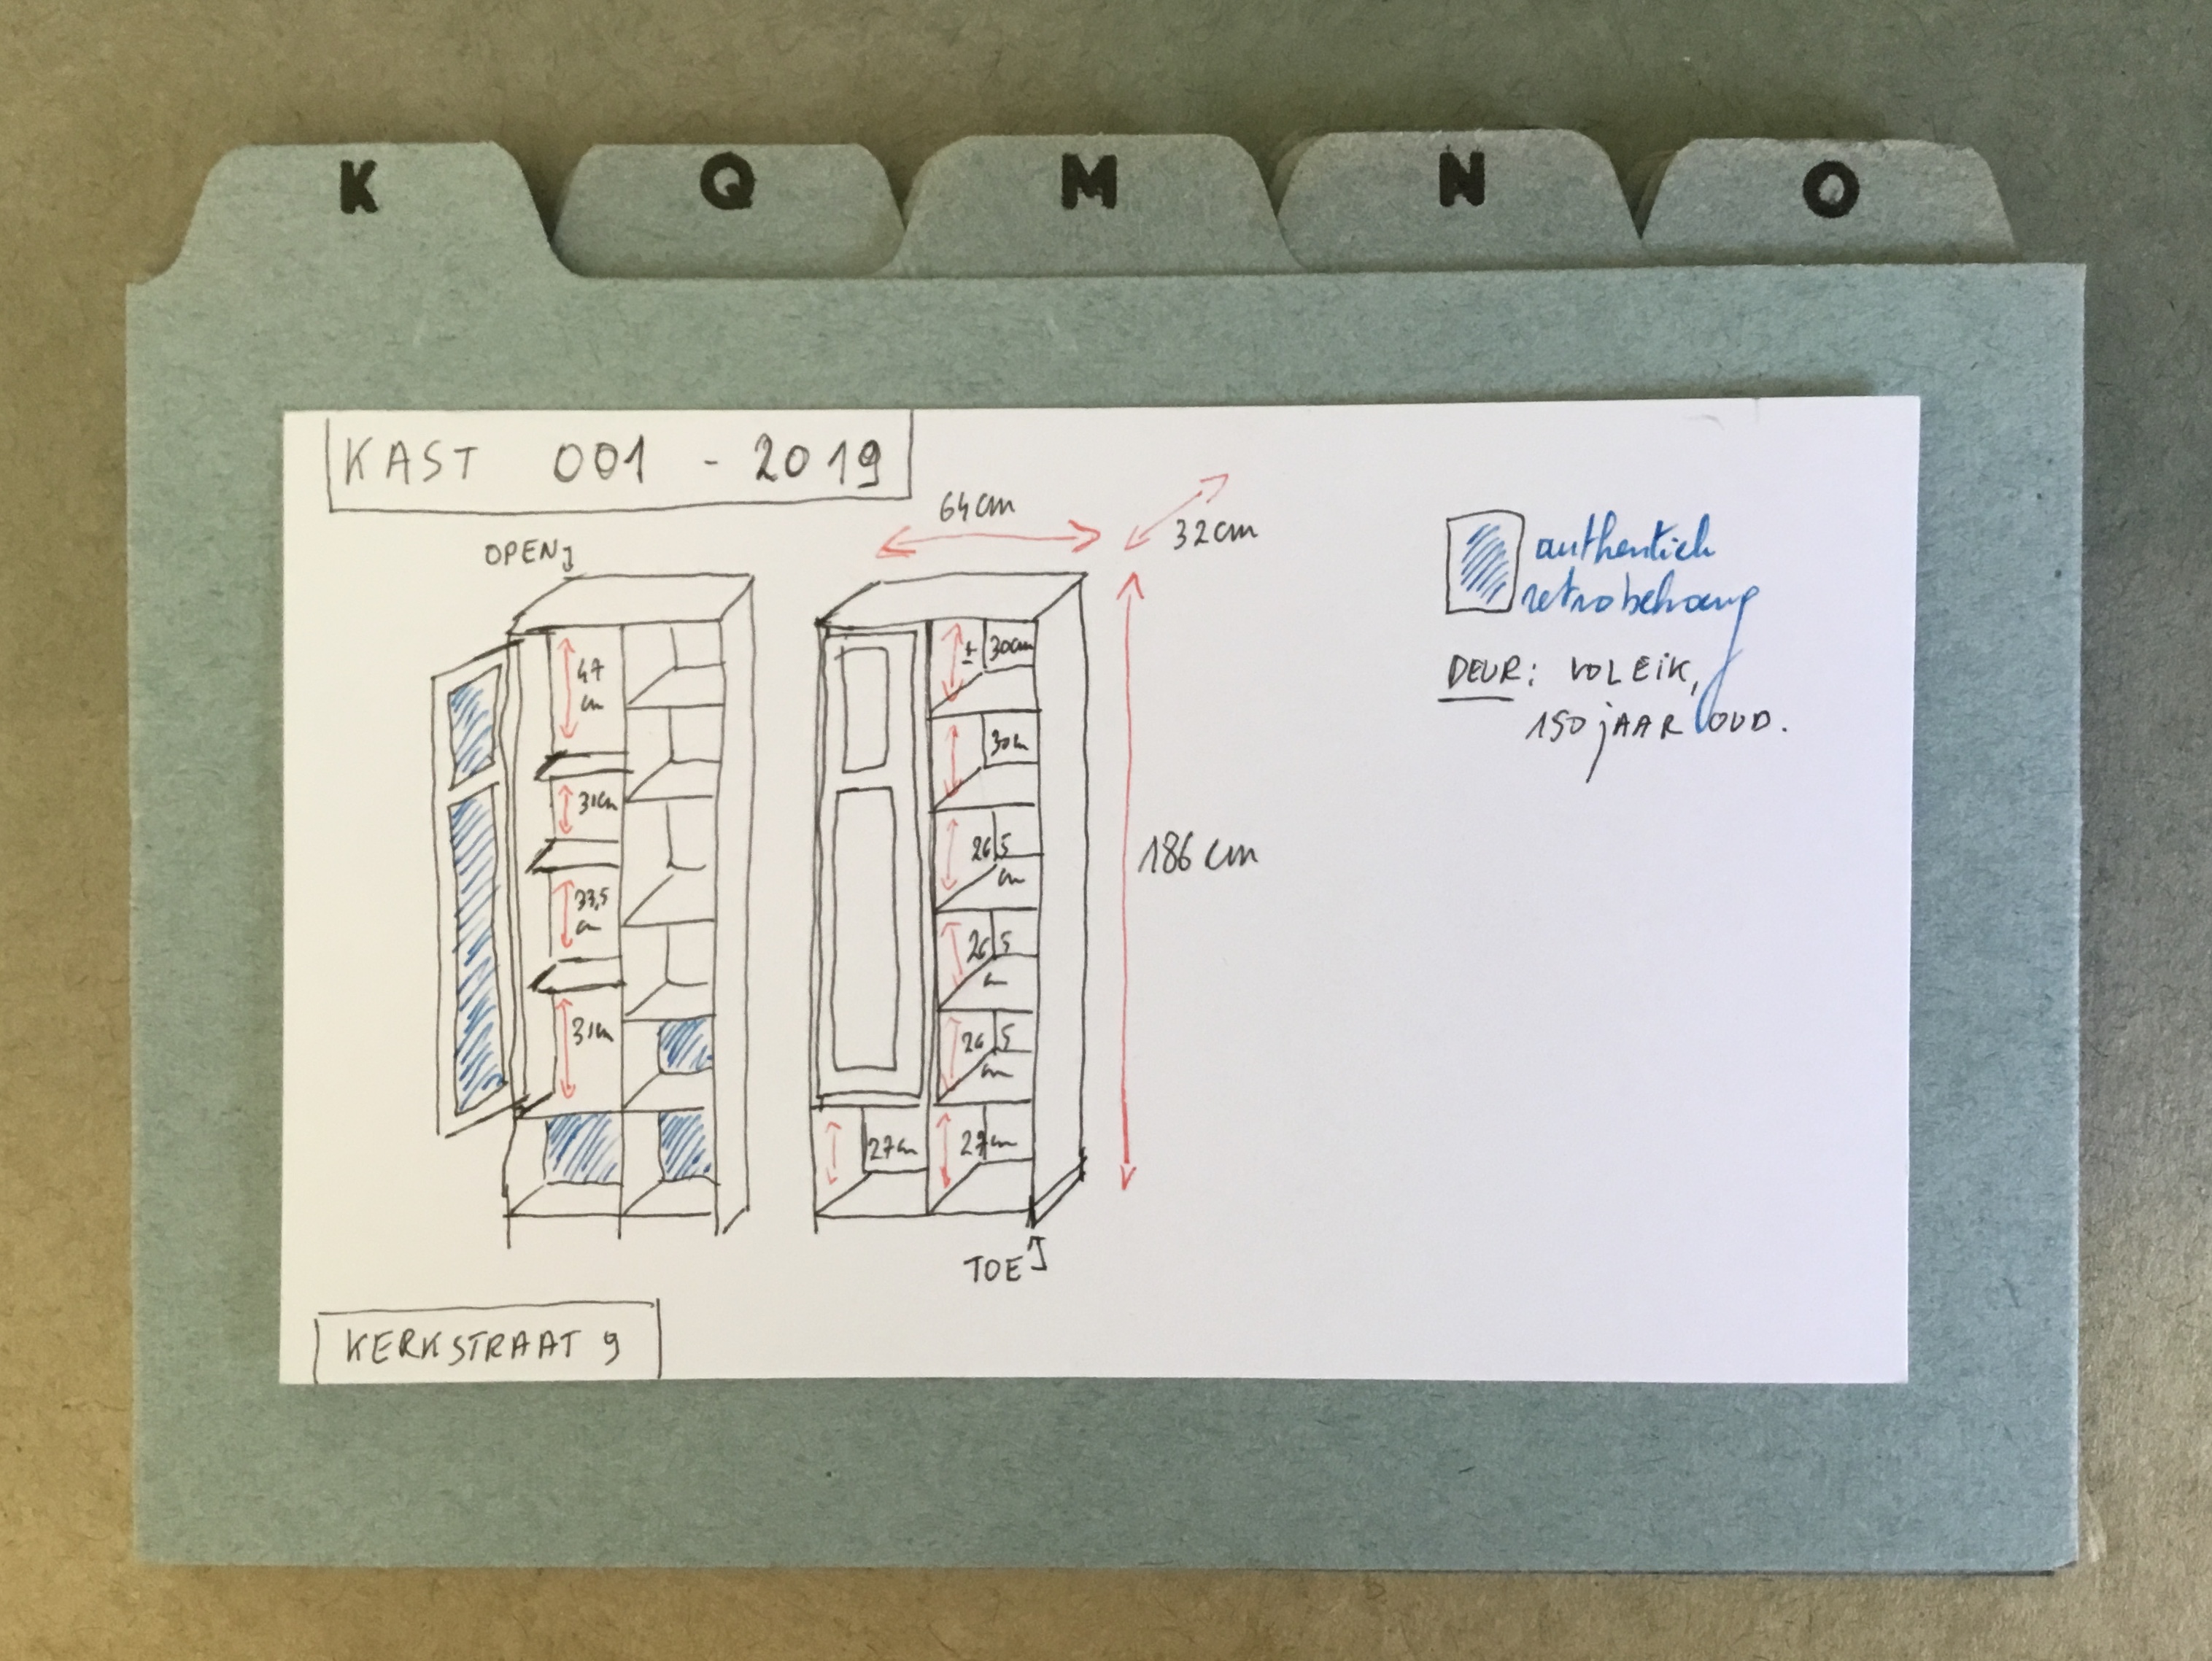 K Q M N O
KAST 001 - 2019
64cm
32cm
OPEN
authentiek
retrobehang
DEUR: VOLEIK,
150 jAAR OUD.
47
cm
31cm
33,5
cm
31cm
± 30cm
30cm
26,5
cm
26,5
cm
26,5
cm
27cm
27cm
186 cm
TOE
KERKSTRAAT 9